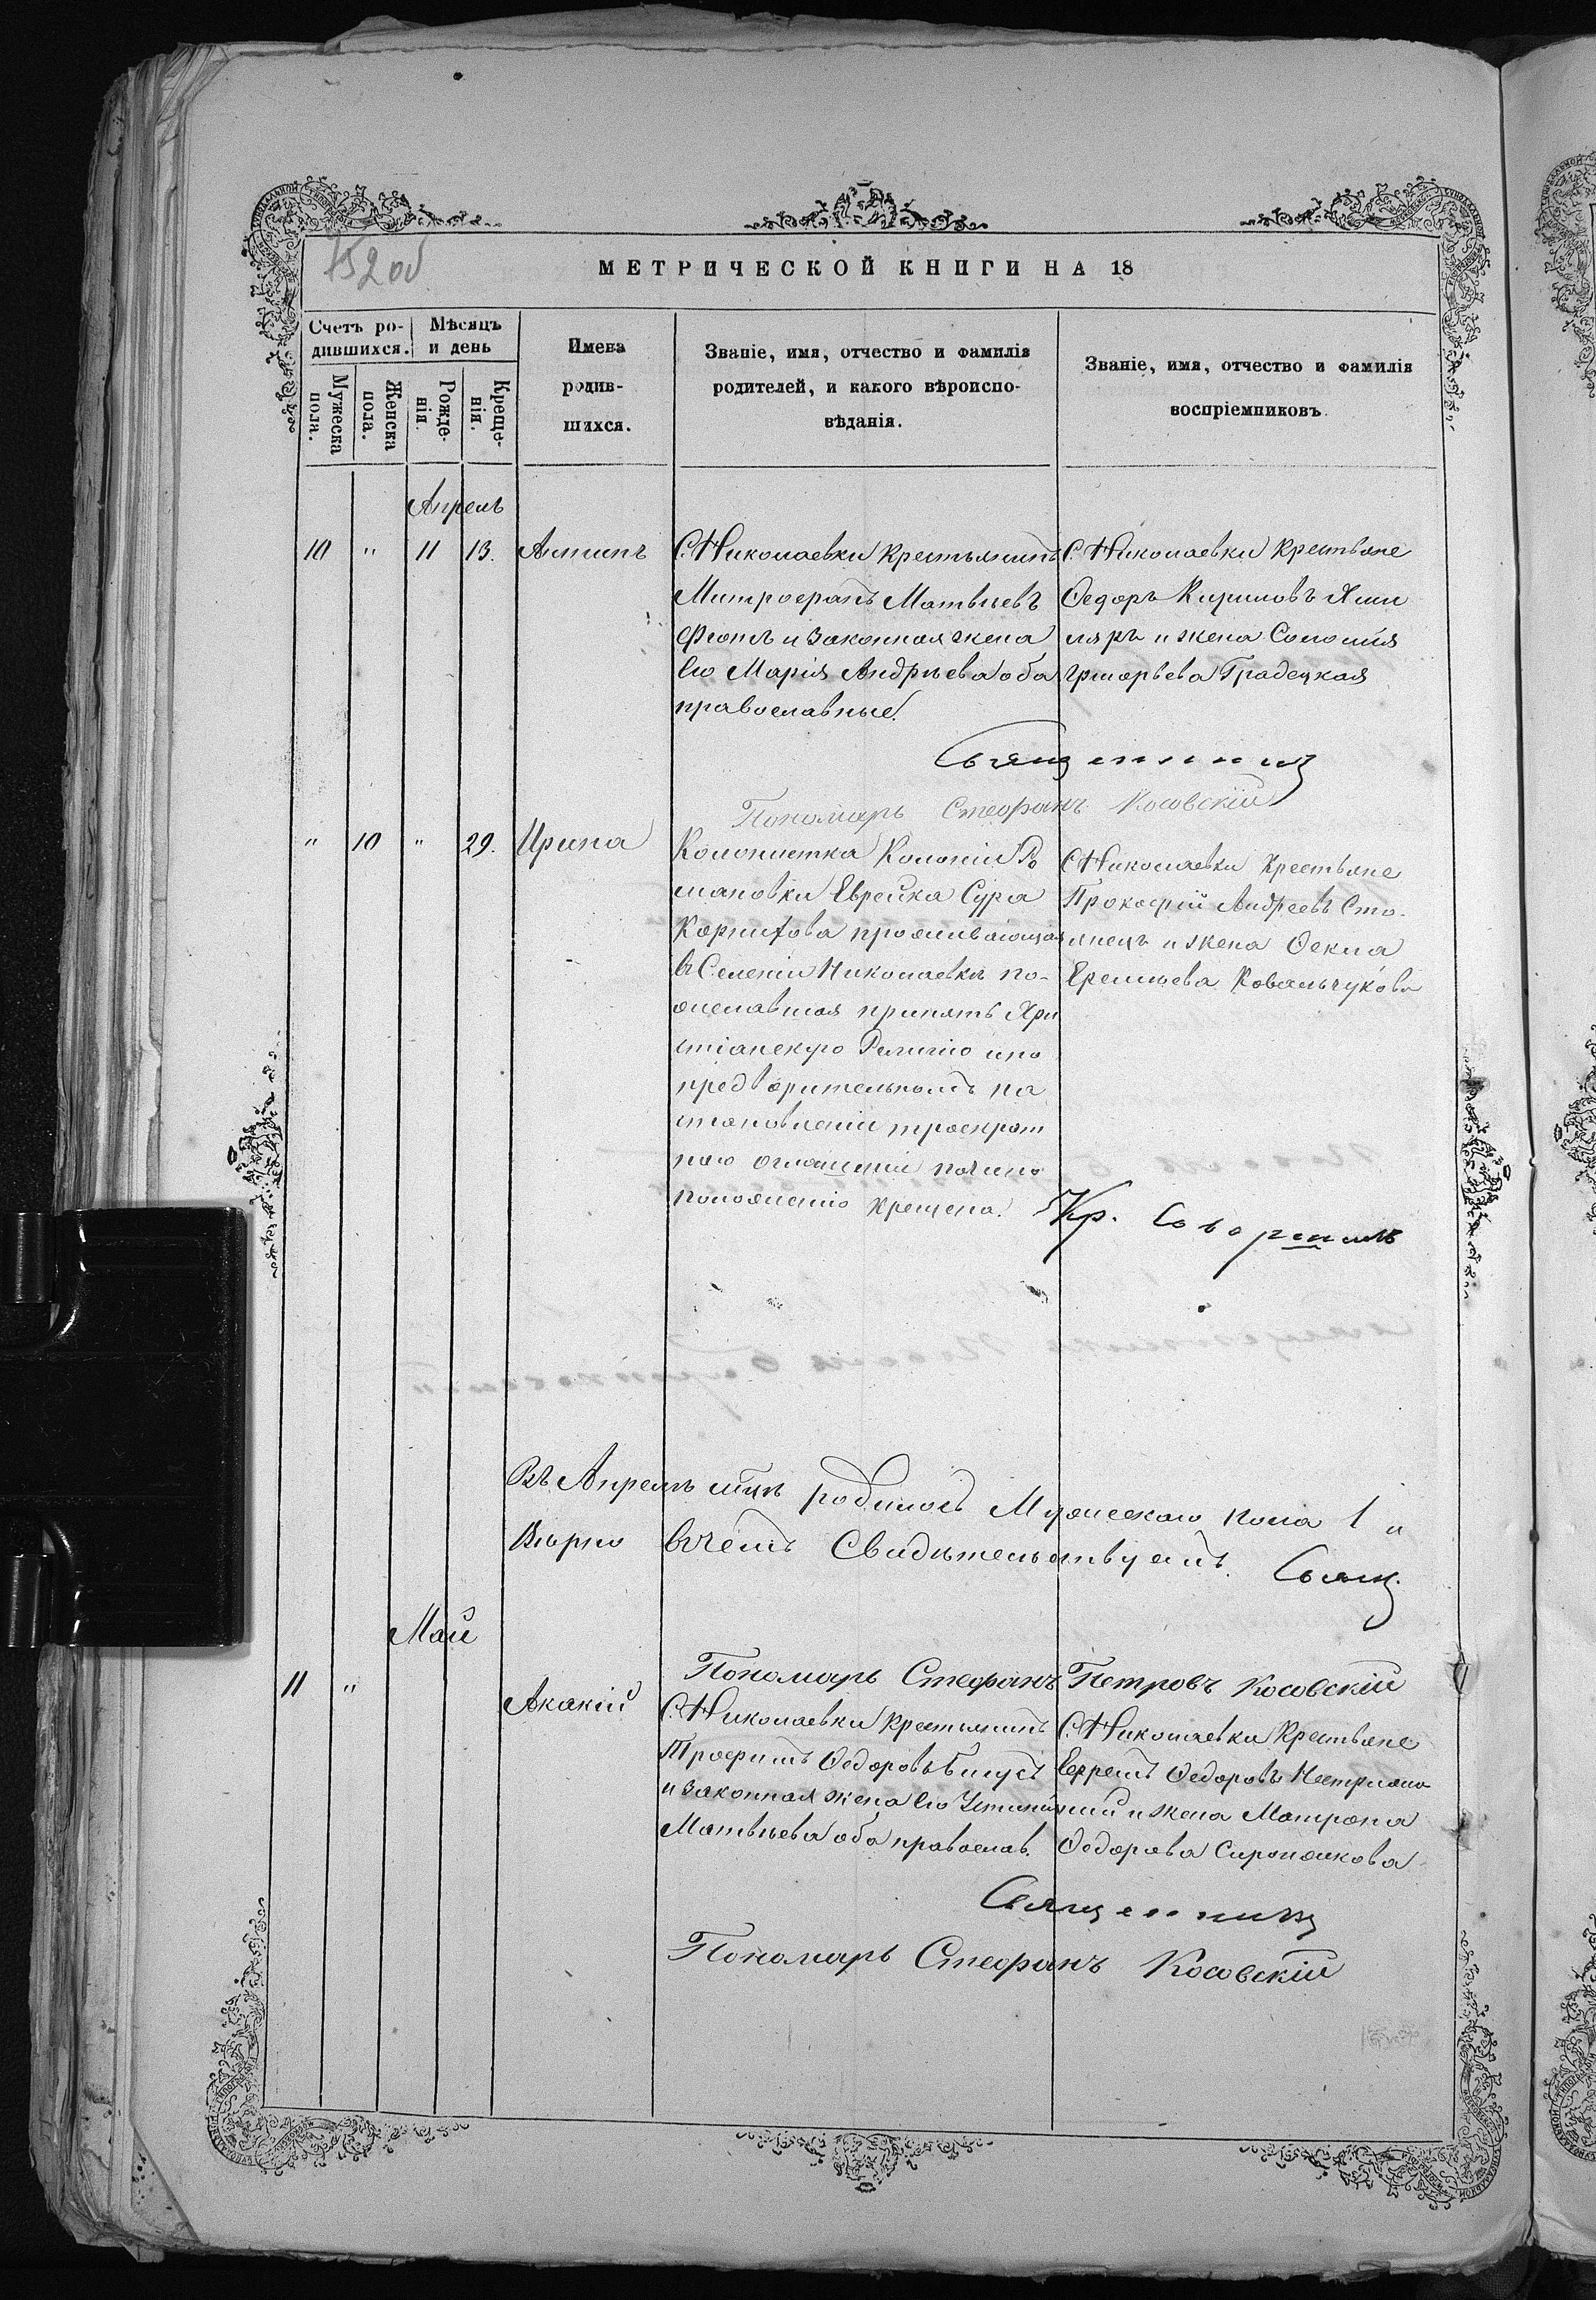 752 об
МЕТРИЧЕСКОЙ КНИГИ НА 18
Счетъ ро-
дившихся.
Мѣсяцъ
и день
Мужеска
пола.
Женска
пола.
Рожде-
нія.
Креще-
нія.
Имена
родив-
шихся.
Званіе, имя, отчество и фамилія
родителей, и какого вѣроиспо-
вѣданія.
Званіе, имя, отчество и фамилія
воспріемниковъ.
Апрель
10 " 11 13. Антипъ
С. Николаевки Крестьянинъ
Митрофанъ Матвѣевъ
и законная жена
Его Марія Андрѣева оба
православные.
С. Николаевки Крестьяне
Ѳедоръ Кириловъ
и жена Соломія
Григорьева Градецкая
Священникъ
Пономарь Стефанъ Косовскій
" 10 " 29. Ирина
Колонистка Колоніи Ро
мановки Еврейка Сура
проживающая
в Селеніи Николаевкѣ по-
желавшая принять Хри
стіанскую Религію и по
предворительномъ на
становленіи троекрат
ного оглашенія по чино
положенію крещена.
С. Николаевки Крестьяне
Прокофій Андреевъ Сто-
янецъ и жена Ѳекла
Еремѣева Ковальчукова
Кр. Совершилъ
Въ Апрелѣ м̃цѣ родилось Мужескаго пола 1 и
Вѣрно в чемъ Свидѣтельствуемъ. Свящ.
Май
Пономарь Стефанъ Петровъ Косовскій
11 " Акакій
С. Николаевки Крестьянинъ
Трофимъ Ѳедоровъ
и законная жена Его Устинія
Матвѣева оба православ.
С. Николаевки Крестьяне
Ефремъ Ѳедоровъ
и жена Матрона
Ѳедорова
Священникъ
Пономарь Стефанъ Косовскій